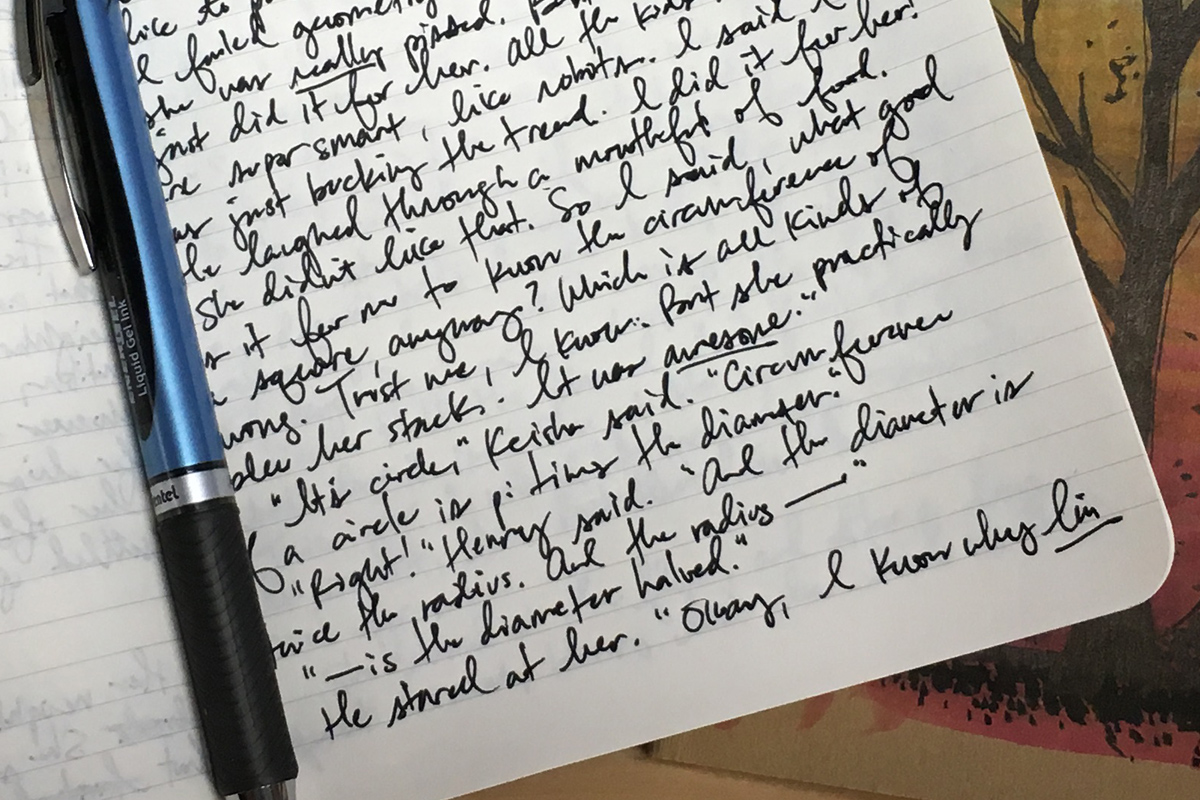 like to
I failed geometry
she was really pissed.
just did it for her. All the kids
super smart, like robots. I said I
just bucking the trend. I did it for her!
He laughed through a mouthful of food.
She didn't like that. So I said, what good
is it for me to know the circumference of
a square, anyway? Which is all kinds of
wrong. Trust me, I know. But she practically
blew her stack. It was awesome."
"It's circle," Keisha said. "Circumference
of a circle is pi times the diameter."
"Right!" Henry said. "And the diameter is
twice the radius. And the radius —"
"— is the diameter halved."
He stared at her. "Okay, I know why I'm
Liquid Gel Ink